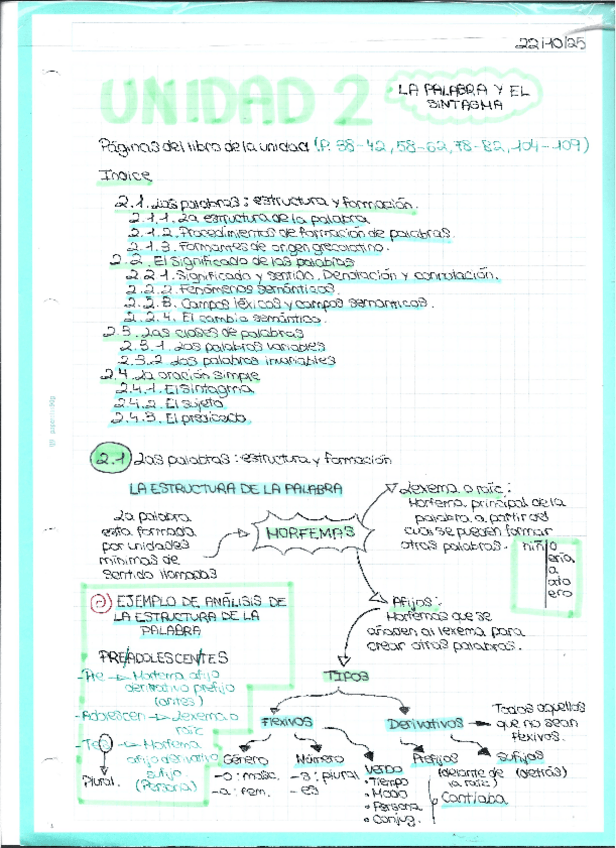 22/10/25
UNIDAD 2
LA PALABRA Y EL
SINTAGMA
Páginas del libro de la unidad (P. 38-42, 58-62, 78-82, 104-109)
Indice
2.1. Las palabras: estructura y formación.
2.1.1. La estructura de la palabra
2.1.2. Procedimientos de formación de palabras.
2.1.3. Formantes de origen grecolatino.
2.2. El significado de las palabras
2.2.1. Significado y sentido. Denotación y connotación.
2.2.2. Fenómenos semánticos.
2.2.3. Campos léxicos y campos semanticos.
2.2.4. El cambio semántico.
2.3. Las clases de palabras
2.3.1. Las palabras variables
2.3.2 Las palabras invariables
2.4. La oración simple
2.4.1. El sintagma
2.4.2. El sujeto
2.4.3. El predicado
2.1 Las palabras: estructura y formación
LA ESTRUCTURA DE LA PALABRA
La palabra
está formada
por unidades
mínimas de
sentido llamadas
MORFEMAS
Lexema o raíz:
Morfema principal de la
palabra a partir del
cual se pueden formar
otras palabras.
niñ o
ería
a
ato
ero
Afijos:
Morfemas que se
añaden al lexema para
crear otras palabras.
EJEMPLO DE ANÁLISIS DE
LA ESTRUCTURA DE LA
PALABRA
PRE/ADOLESCEN/TES
-Pre → Morfema afijo
derivativo prefijo
(antes)
-Adolescen → Lexema o
raíz
-Tes → Morfema
afijo derivativo
sufijo
(Persona)
Plural.
TIPOS
Flexivos
Derivativos → Todos aquellos
que no sean
flexivos.
Género
-o: masc.
-a: fem.
Número
-s: plural
-es
Verbo
• Tiempo
• Modo
• Persona
• Conjug.
Prefijos
(delante de
la raíz)
Sufijos
(detrás)
Cantaba